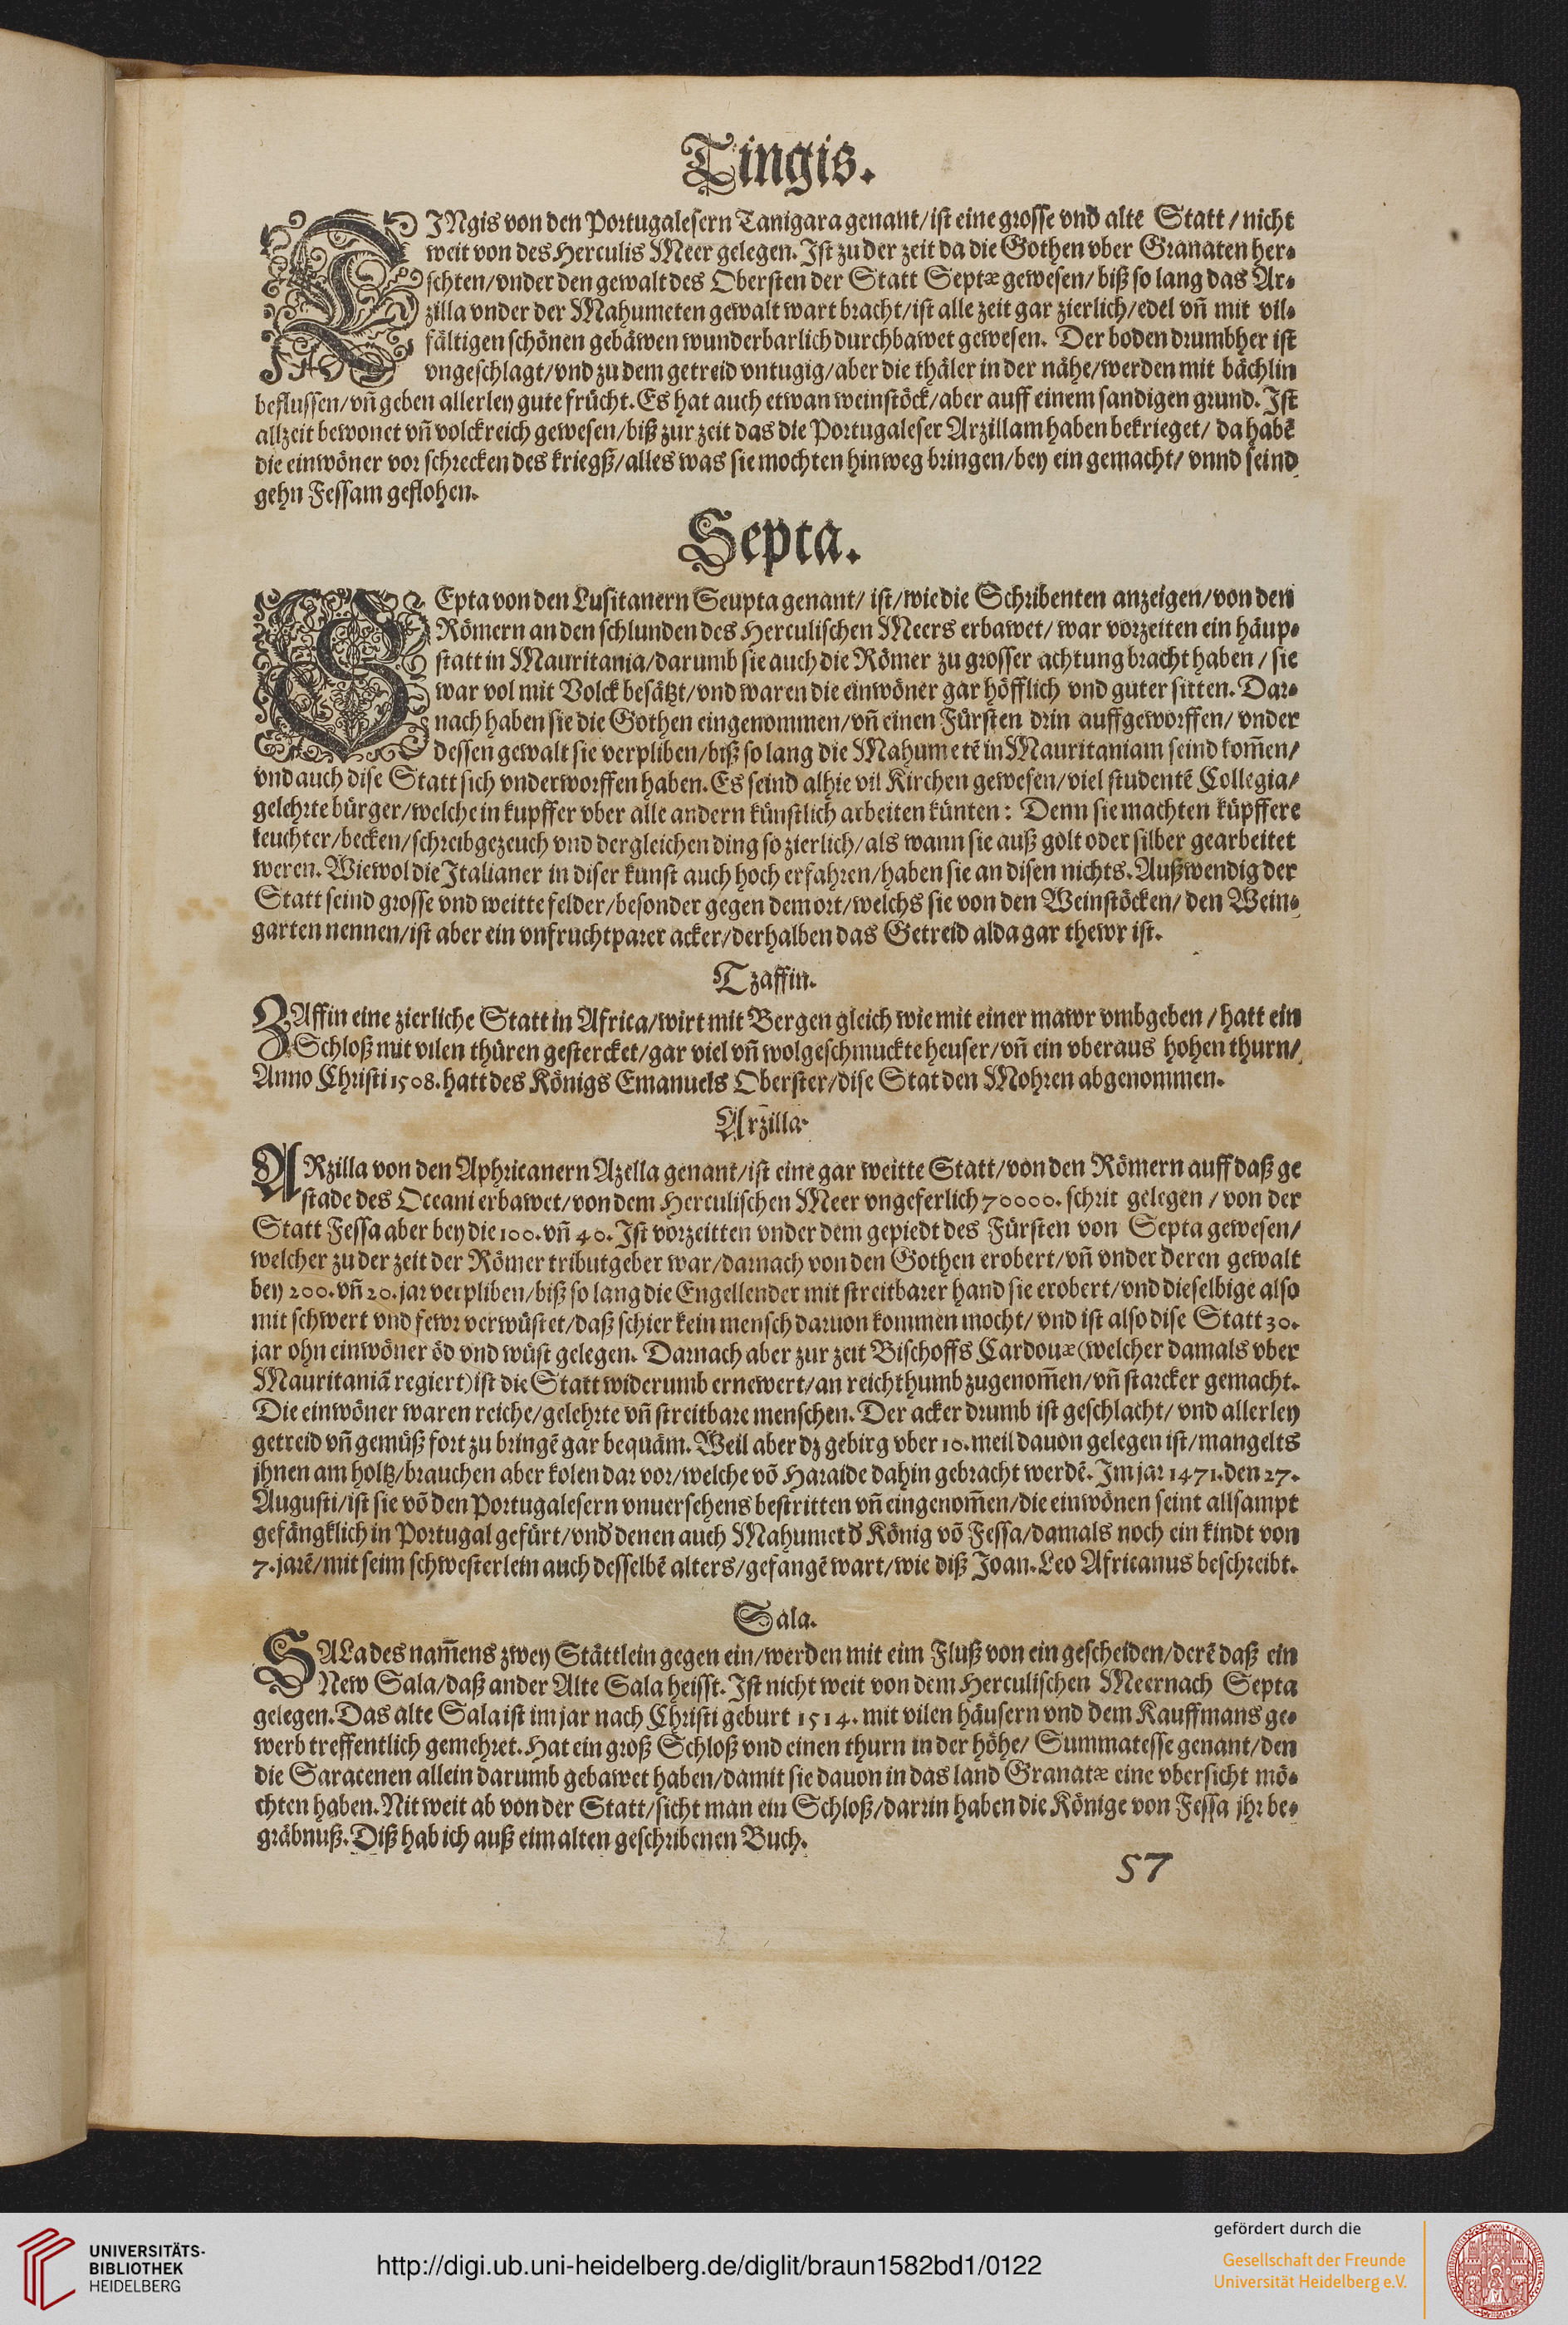 Tingis.
TINgis von den Portugalesern Tanigara genant/ist eine grosse vnd alte Statt/nicht
weit von des Herculis Meer gelegen. Ist zu der zeit da die Gothen vber Granaten her⸗
schten/vnder den gewalt des Obersten der Statt Septæ gewesen/biß so lang das Ar⸗
zilla vnder der Mahumeten gewalt wart bracht/ist alle zeit gar zierlich/edel vn̄ mit vil⸗
fältigen schönen gebäwen wunderbarlich durchbawet gewesen. Der boden drumbher ist
vngeschlagt/vnd zu dem getreid vntugig/aber die thäler in der nähe/werden mit bächlin
beflussen/vn̄ geben allerley gute frücht. Es hat auch etwan weinstöck/aber auff einem sandigen grund. Ist
allzeit bewonet vn̄ volckreich gewesen/biß zur zeit das die Portugaleser Arzillam haben bekrieget/da habē
die einwöner vor schrecken des kriegß/alles was sie mochten hinweg bringen/bey ein gemacht/vnnd seind
gehn Fessam geflohen.
Septa.
SEpta von den Lusitanern Seupta genant/ist/wie die Schribenten anzeigen/von den
Römern an den schlunden des Herculischen Meers erbawet/war vorzeiten ein häup⸗
statt in Mauritania/darumb sie auch die Römer zu grosser achtung bracht haben/sie
war vol mit Volck besätzt/vnd waren die einwöner gar höfflich vnd guter sitten. Dar⸗
nach haben sie die Gothen eingenommen/vn̄ einen Fürsten drin auffgeworffen/vnder
dessen gewalt sie verpliben/biß so lang die Mahumetē in Mauritaniam seind kom̄en/
vnd auch dise Statt sich vnderworffen haben. Es seind alhie vil Kirchen gewesen/viel studentē Collegia/
gelehrte bürger/welche in kupffer vber alle andern künstlich arbeiten künten: Denn sie machten küpffere
leuchter/becken/schreibgezeuch vnd dergleichen ding so zierlich/als wann sie auß golt oder silber gearbeitet
weren. Wiewol die Italianer in diser kunst auch hoch erfahren/haben sie an disen nichts. Außwendig der
Statt seind grosse vnd weitte felder/besonder gegen dem ort/welchs sie von den Weinstöcken/den Wein⸗
garten nennen/ist aber ein vnfruchtparer acker/derhalben das Getreid alda gar thewr ist.
Tzaffin.
ZAffin eine zierliche Statt in Africa/wirt mit Bergen gleich wie mit einer mawr vmbgeben/hatt ein
Schloß mit vilen thüren gestercket/gar viel vn̄ wolgeschmuckte heuser/vn̄ ein vberaus hohen thurn/
Anno Christi 1508. hatt des Königs Emanuels Oberster/dise Stat den Mohren abgenommen.
Arzilla.
ARzilla von den Aphricanern Azella genant/ist eine gar weitte Statt/von den Römern auff daß ge
stade des Oceani erbawet/von dem Herculischen Meer vngeferlich 70000. schrit gelegen/von der
Statt Fessa aber bey die 100. vn̄ 40. Ist vorzeitten vnder dem gepiedt des Fürsten von Septa gewesen/
welcher zu der zeit der Römer tributgeber war/darnach von den Gothen erobert/vn̄ vnder deren gewalt
bey 200. vn̄ 20. jar verpliben/biß so lang die Engellender mit streitbarer hand sie erobert/vnd dieselbige also
mit schwert vnd fewr verwüstet/daß schier kein mensch daruon kommen mocht/vnd ist also dise Statt 30.
jar ohn einwöner öd vnd wüst gelegen. Darnach aber zur zeit Bischoffs Cardouæ (welcher damals vber
Mauritaniā regiert) ist die Statt widerumb ernewert/an reichthumb zugenom̄en/vn̄ starcker gemacht.
Die einwöner waren reiche/gelehrte vn̄ streitbare menschen. Der acker drumb ist geschlacht/vnd allerley
getreid vn̄ gemüß fort zu bringē gar bequäm. Weil aber dz gebirg vber 10. meil dauon gelegen ist/mangelts
jhnen am holtz/brauchen aber kolen dar vor/welche vō Haraide dahin gebracht werdē. Im jar 1471. den 27.
Augusti/ist sie vō den Portugalesern vnuersehens bestritten vn̄ eingenom̄en/die einwönen seint allsampt
gefängklich in Portugal gefürt/vnd denen auch Mahumet d' König vō Fessa/damals noch ein kindt von
7. jarē/mit seim schwesterlein auch desselbē alters/gefangē wart/wie diß Joan. Leo Africanus beschreibt.
Sala.
SALa des nam̄ens zwey Stättlein gegen ein/werden mit eim Fluß von ein gescheiden/derē daß ein
New Sala/daß ander Alte Sala heisst. Ist nicht weit von dem Herculischen Meer nach Septa
gelegen. Das alte Sala ist im jar nach Christi geburt 1514. mit vilen häusern vnd dem Kauffmans ge⸗
werb treffentlich gemehret. Hat ein groß Schloß vnd einen thurn in der höhe/Summatesse genant/den
die Saracenen allein darumb gebawet haben/damit sie dauon in das land Granatæ eine vbersicht mö⸗
chten haben. Nit weit ab von der Statt/sicht man ein Schloß/darrin haben die Könige von Fessa jhr be⸗
gräbnuß. Diß hab ich auß eim alten geschribenen Buch.
57
UNIVERSITÄTS-
BIBLIOTHEK
HEIDELBERG
http://digi.ub.uni-heidelberg.de/diglit/braun1582bd1/0122
gefördert durch die
Gesellschaft der Freunde
Universität Heidelberg e.V.